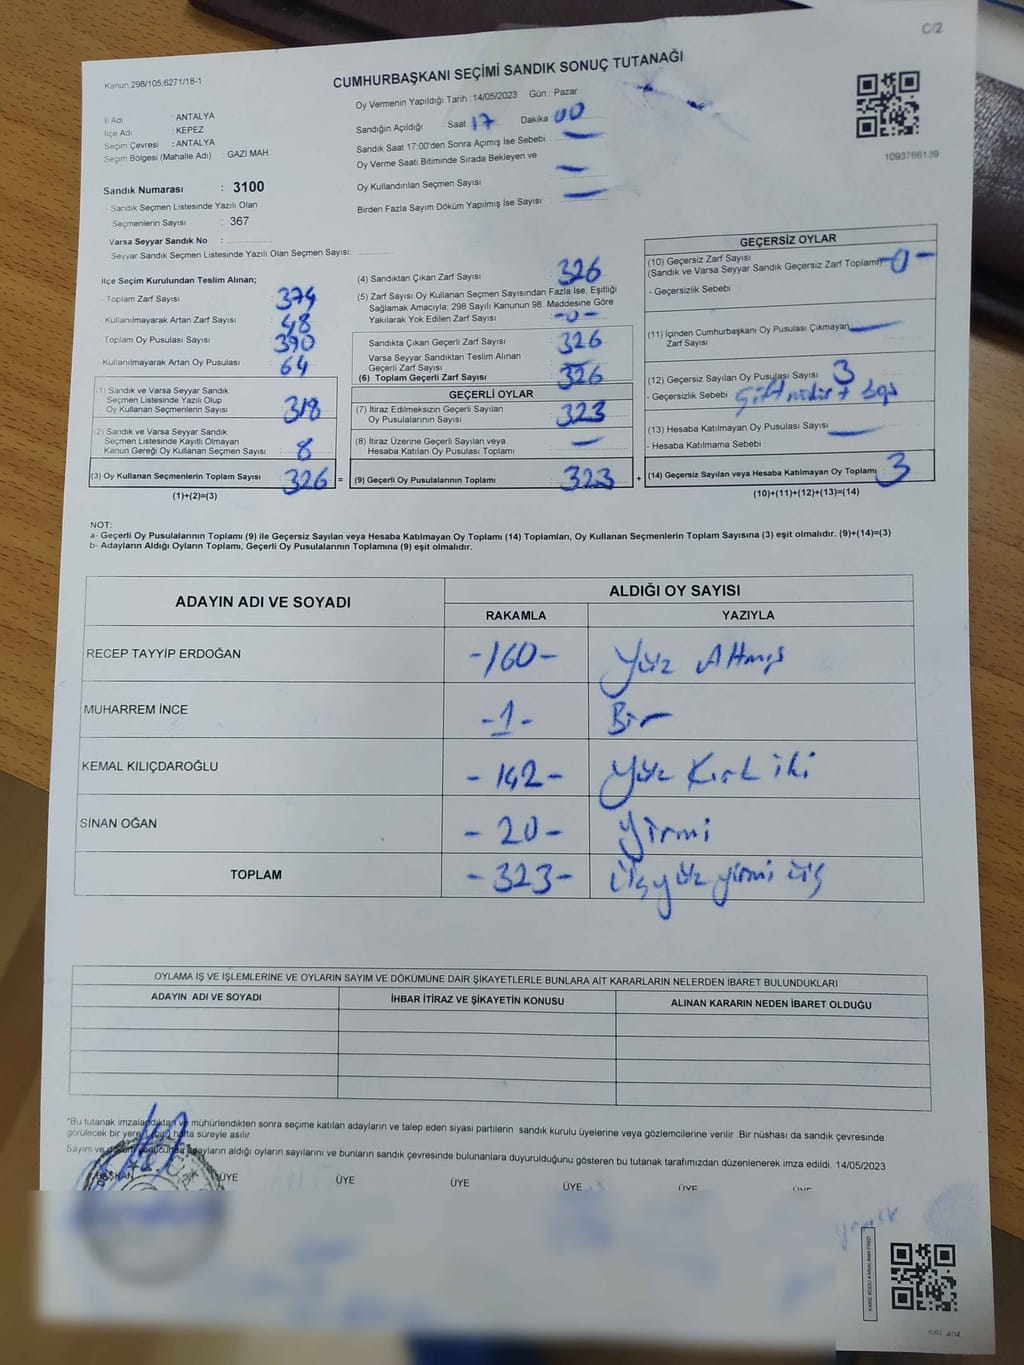 C/2
Kanun.298/105;6271/18-1
CUMHURBAŞKANI SEÇİMİ SANDIK SONUÇ TUTANAĞI
Oy Vermenin Yapıldığı Tarih : 14/05/2023 Gün : Pazar
İl Adı : ANTALYA
İlçe Adı : KEPEZ
Seçim Çevresi : ANTALYA
Seçim Bölgesi (Mahalle Adı) : GAZİ MAH.
Sandığın Açıldığı Saat 17 Dakika 00
Sandık Saat 17:00'den Sonra Açımış İse Sebebi : —
Oy Verme Saati Bitiminde Sırada Bekleyen ve
Oy Kullandırılan Seçmen Sayısı : —
Birden Fazla Sayım Döküm Yapılmış İse Sayısı : —
1093766139
Sandık Numarası : 3100
Sandık Seçmen Listesinde Yazılı Olan
Seçmenlerin Sayısı : 367
Varsa Seyyar Sandık No :
Seyyar Sandık Seçmen Listesinde Yazılı Olan Seçmen Sayısı:
İlçe Seçim Kurulundan Teslim Alınan;
- Toplam Zarf Sayısı 374
- Kullanılmayarak Artan Zarf Sayısı : 48
Toplam Oy Pusulası Sayısı : 390
- Kullanılmayarak Artan Oy Pusulası 64
(1) Sandık ve Varsa Seyyar Sandık
Seçmen Listesinde Yazılı Olup
Oy Kullanan Seçmenlerin Sayısı 318
(2) Sandık ve Varsa Seyyar Sandık
Seçmen Listesinde Kayıtlı Olmayan
Kanun Gereği Oy Kullanan Seçmen Sayısı 8
(3) Oy Kullanan Seçmenlerin Toplam Sayısı 326 =
(1)+(2)=(3)
(4) Sandıktan Çıkan Zarf Sayısı 326
(5) Zarf Sayısı Oy Kullanan Seçmen Sayısından Fazla İse, Eşitliği
Sağlamak Amacıyla; 298 Sayılı Kanunun 98. Maddesine Göre
Yakılarak Yok Edilen Zarf Sayısı -0-
Sandıkta Çıkan Geçerli Zarf Sayısı 326
Varsa Seyyar Sandıktan Teslim Alınan
Geçerli Zarf Sayısı —
(6) Toplam Geçerli Zarf Sayısı 326
GEÇERLİ OYLAR
(7) İtiraz Edilmeksizin Geçerli Sayılan
Oy Pusulalarının Sayısı 323
(8) İtiraz Üzerine Geçerli Sayılan veya
Hesaba Katılan Oy Pusulası Toplamı —
(9) Geçerli Oy Pusulalarının Toplamı 323 +
GEÇERSİZ OYLAR
(10) Geçersiz Zarf Sayısı
(Sandık ve Varsa Seyyar Sandık Geçersiz Zarf Toplamı) -0-
- Geçersizlik Sebebi :
(11) İçinden Cumhurbaşkanı Oy Pusulası Çıkmayan
Zarf Sayısı —
(12) Geçersiz Sayılan Oy Pusulası Sayısı 3
- Geçersizlik Sebebi
(13) Hesaba Katılmayan Oy Pusulası Sayısı —
- Hesaba Katılmama Sebebi :
(14) Geçersiz Sayılan veya Hesaba Katılmayan Oy Toplamı 3
(10)+(11)+(12)+(13)=(14)
NOT:
a- Geçerli Oy Pusulalarının Toplamı (9) ile Geçersiz Sayılan veya Hesaba Katılmayan Oy Toplamı (14) Toplamları, Oy Kullanan Seçmenlerin Toplam Sayısına (3) eşit olmalıdır. (9)+(14)=(3)
b- Adayların Aldığı Oyların Toplamı, Geçerli Oy Pusulalarının Toplamına (9) eşit olmalıdır.
ADAYIN ADI VE SOYADI ALDIĞI OY SAYISI
RAKAMLA YAZIYLA
RECEP TAYYİP ERDOĞAN -160- Yüz Altmış
MUHARREM İNCE -1- Bir
KEMAL KILIÇDAROĞLU -142- Yüz Kırk iki
SİNAN OĞAN -20- Yirmi
TOPLAM -323- Üçyüz yirmi üç
OYLAMA İŞ VE İŞLEMLERİNE VE OYLARIN SAYIM VE DÖKÜMÜNE DAİR ŞİKAYETLERLE BUNLARA AİT KARARLARIN NELERDEN İBARET BULUNDUKLARI
ADAYIN ADI VE SOYADI İHBAR İTİRAZ VE ŞİKAYETİN KONUSU ALINAN KARARIN NEDEN İBARET OLDUĞU
*Bu tutanak imzalandıktan ve mühürlendikten sonra seçime katılan adayların ve talep eden siyasi partilerin sandık kurulu üyelerine veya gözlemcilerine verilir. Bir nüshası da sandık çevresinde
görülecek bir yere bir hafta süreyle asılır.
Sayım ve döküm sonucunda adayların aldığı oyların sayılarını ve bunların sandık çevresinde bulunanlara duyurulduğunu gösteren bu tutanak tarafımızdan düzenlenerek imza edildi. 14/05/2023
BAŞKAN ÜYE ÜYE ÜYE ÜYE ÜYE ÜYE
KARE KODU KARALAMAYINIZ!